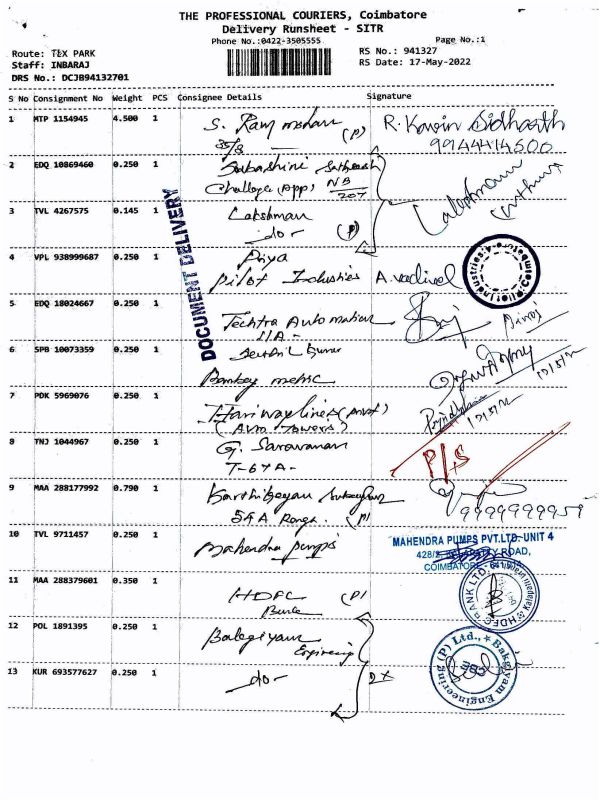 THE PROFESSIONAL COURIERS, Coimbatore
Delivery Runsheet - SITR
Phone No.:0422-3505555
Page No.:1
Route: TEX PARK
RS No.: 941327
Staff: INBARAJ
RS Date: 17-May-2022
DRS No.: DCJB94132701
S No Consignment No Weight PCS Consignee Details Signature
1 MTP 1154945 4.500 1 S. Ram mohan (P) R. Kavin Sidharth
35/8 9944414500
2 EDQ 10869460 0.250 1 Subashini Satheesh
Challenger (App) NB 207
3 TVL 4267575 0.145 1 Lakshman Lakshmam
do (P)
DOCUMENT DELIVERY
4 VPL 938999687 0.250 1 Priya
Pilot Industries A. Vadivel
5 EDQ 18024667 0.250 1 Techtra Automation
11A
6 SPB 10073359 0.250 1 Senthil Kumar
Bombay metric
7 PDK 5969076 0.250 1 Hariwayliners
8 TNJ 1044967 0.250 1 G. Saravanan P/S
T-67A
9 MAA 288177992 0.790 1 Karthikeyan
54A (P)
10 TVL 9711457 0.250 1 Mahendra pumps
MAHENDRA PUMPS PVT.LTD. UNIT 4
ROAD,
COIMBATORE
11 MAA 288379601 0.350 1 HDFC (P)
HDFC BANK LTD.
12 POL 1891395 0.250 1 Bakgiyam
Engineering
13 KUR 693577627 0.250 1 do 2x
Bakgiyam Engineering (P) Ltd.,